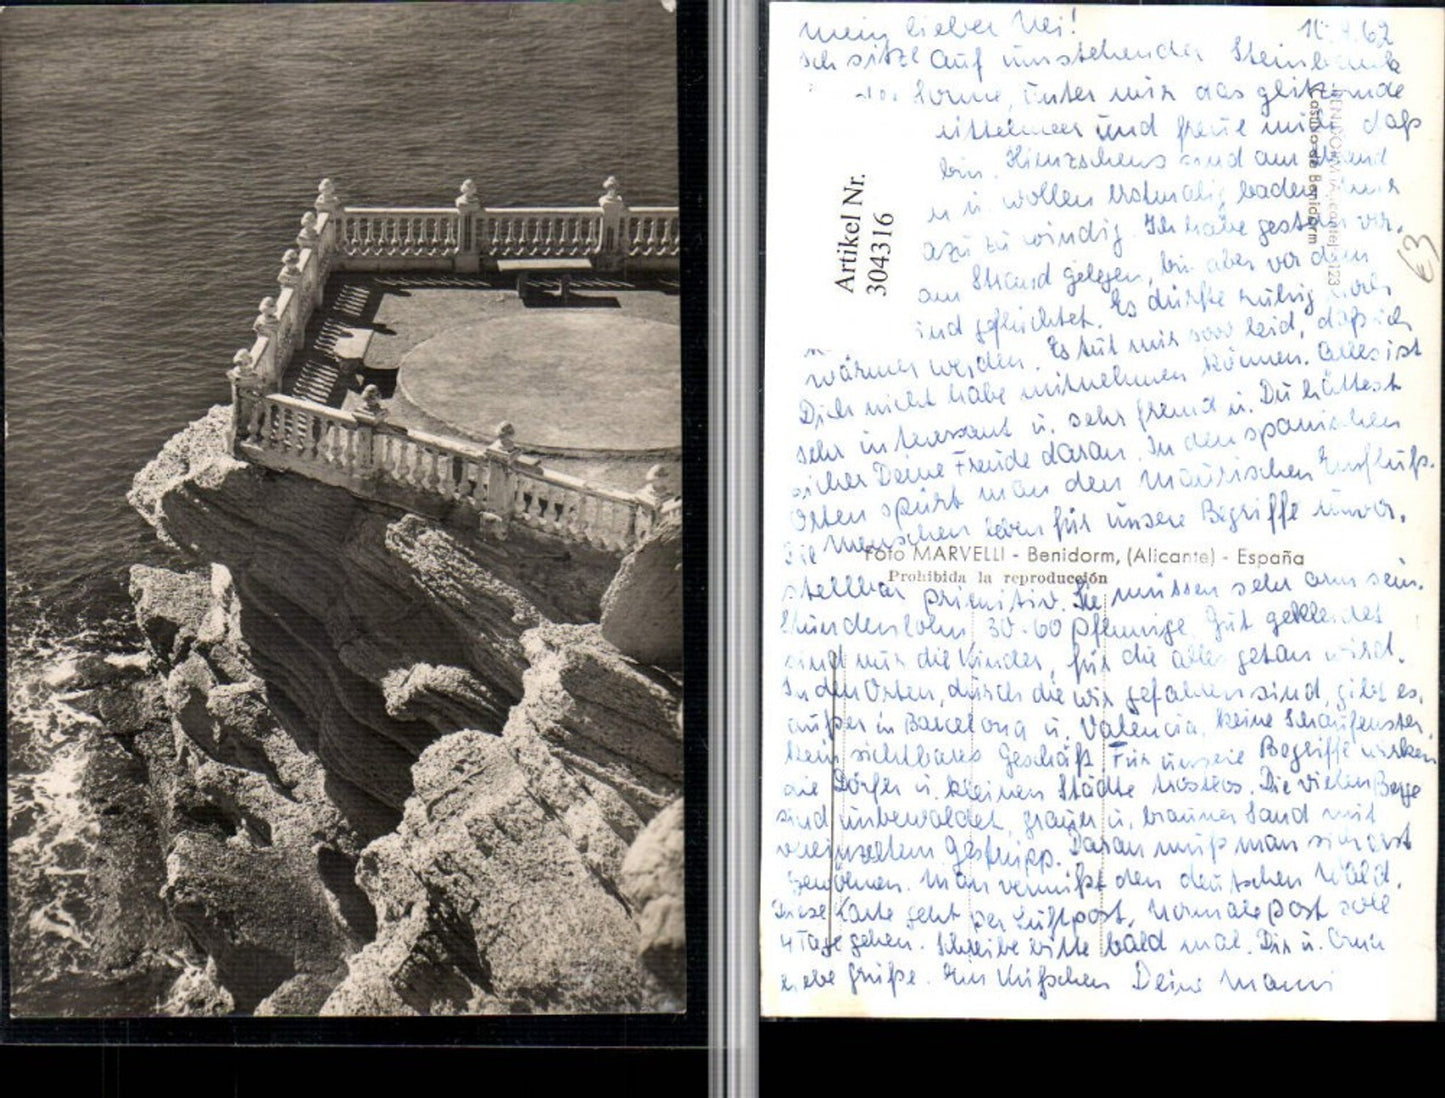 mein lieber
10.4.62
Ich sitze auf umstehender Steinbank
Sonne, unter mir das glitzernde
ittelmeer und freue mich daß
bin. Hienzschens sind am Strand
n u. wollen erstmalig baden mir
azu zu windig. Ich habe gestern vor.
am Strand gelegen, bin aber vor dem
ind geflüchtet. Es dürfte ruhig noch
wärmer werden. Es tut mir sooo leid, daß ich
Dich nicht habe mitnehmen können. Alles ist
sehr interessant u. sehr fremd u. Du hättest
sicher Deine Freude daran. In den spanischen
Orten spürt man den maurischen Einfluß.
Die Menschen leben für unsere Begriffe unvor.
stellbar primitiv. Sie müssen sehr arm sein.
Stundenlohn 30-60 Pfennige. Gut gekleidet
sind nur die Kinder, für die alles getan wird.
In den Orten, durch die wir gefahren sind, gibt es,
außer in Barcelona u. Valencia, keine Schaufenster,
kein sichtbares Geschäft. Für unsere Begriffe wirken
die Dörfer u. kleinen Städte trostlos. Die vielen Berge
sind unbewaldet, grauer u. brauner Sand mit
vereinzeltem Gestrüpp. Daran muß man sich erst
gewöhnen. Man vermißt den deutschen Wald.
Diese Karte geht per Luftpost, Normale Post soll
4 Tage gehen. Schreibe bitte bald mal. Dir u. Omi
liebe Grüße. Ein Küßchen Deine Mami
Artikel Nr.
304316
BENIDORM (Alicante) 123
Castillo de Benidorm
Foto MARVELLI - Benidorm, (Alicante) - España
Prohibida la reproducción